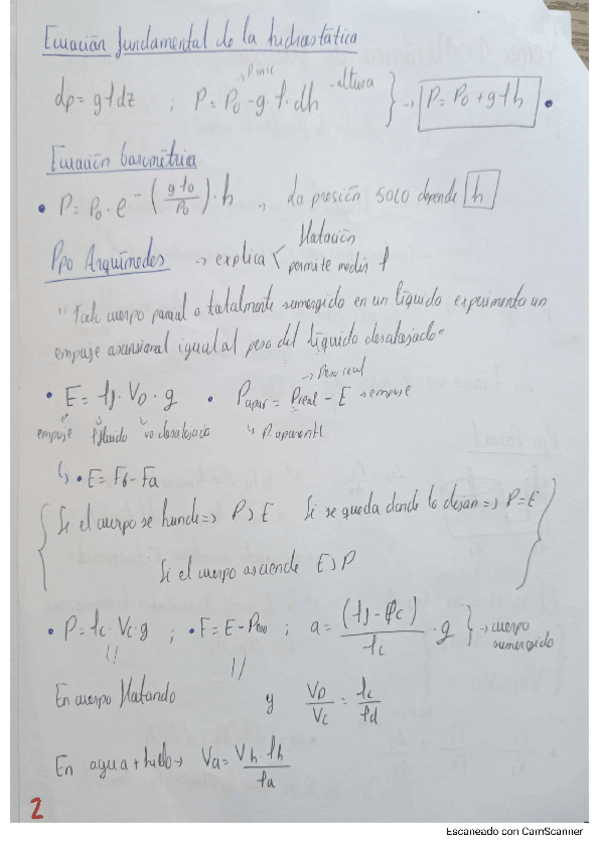 Ecuación fundamental de la hidrostática
dp = gρdz ; P = P₀ - g·ρ·dh → altura } → P = P₀ + gρh •
Ecuación barométrica
• P = P₀·e^-(gρ₀/P₀)·h → La presión SOLO depende h
Ppo Arquímedes → explica < flotación
permite medir ρ
"Todo cuerpo parcial o totalmente sumergido en un líquido experimenta un
empuje ascensional igual al peso del líquido desalojado"
→ Peso real
• E = ρf·VD·g • Papar = Preal - E → empuje
empuje ρfluido v desalojado ↳ P. aparente
↳ • E = Fb - Fa
Si el cuerpo se hunde => P > E Si se queda donde lo dejan => P = E
Si el cuerpo asciende E > P
• P = ρc·Vc·g ; • F = E - Peso ; a = (ρf - ρc)/ρc · g } → cuerpo
sumergido
En cuerpo flotando y VD/Vc = ρc/ρd
En agua + hielo → Va = Vh·ρh/ρa
2
Escaneado con CamScanner